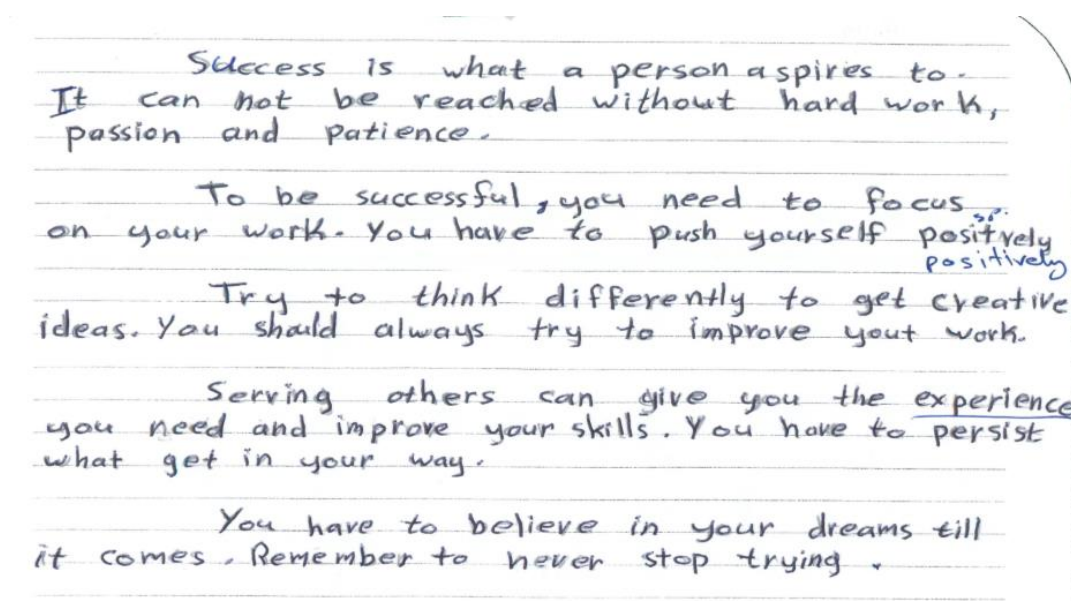 Success is what a person aspires to.
It can not be reached without hard work,
passion and patience.
To be successful, you need to focus
sp.
on your work. You have to push yourself positvely
positively
Try to think differently to get creative
ideas. You should always try to improve yout work.
Serving others can give you the experience
you need and improve your skills. You have to persist
what get in your way.
You have to believe in your dreams till
it comes. Remember to never stop trying.